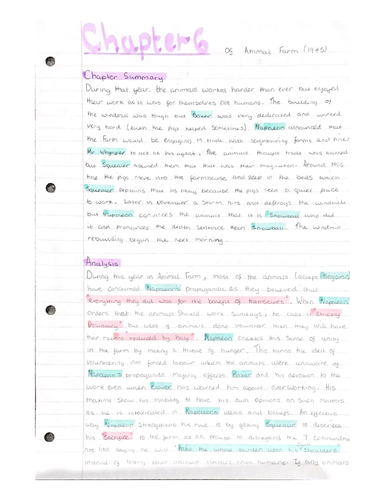 Chapter 6 Of Animal Farm (1945)
Chapter Summary
During that year, the animals worked harder than ever but enjoyed
their work as it was for themselves not humans. The building of
the windmill was tough but Boxer was very dedicated and worked
very hard (even the pigs helped sometimes). Napoleon announced that
the farm would be engaging in trade with neighbouring farms and hired
Mr Whymper to act as his agent. The animals thought trade was banned
but Squealer assured them that that was their imagination. Around this
time the pigs move into the farmhouse and sleep in the beds which
Squealer explains that its okay because the pigs need a quiet place
to work. Later in November a storm hits and destroys the windmill
but Napoleon convinces the animals that it is Snowball who did
it and pronounces the death sentence on Snowball. The windmill
rebuilding begun the next morning.
Analysis
During this year in Animal Farm, most of the animals (except Benjamin)
have consumed Napoleons propaganda as they believed that
"everything they did was for the benefit of themselves". When Napoleon
orders that the animals should work Sundays, he calls it "strictly
voluntary" but says if animals dont volunteer then they will have
their rations "reduced by half". Napoleon creates this sense of unity
in the farm by making a threat of hunger. The
Napoleon's propaganda majorly affects Boxer and his devotion to the
work even when Clover has warned him about overworking. His
maxims show his inability to have his own opinions on such matters
as he is in Napoleons ideas and beliefs. An effective
way Napoleon strengthens his rule is by
his to the farm as
"take the whole burden upon his shoulders"
instead of